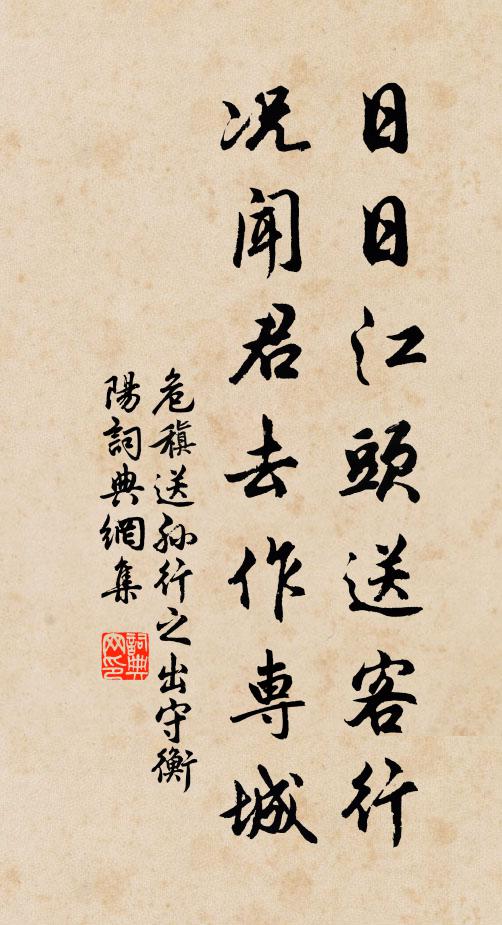 日日江頭送客行
况聞君去作専城
危稹送孫行之出守衡
陽詞典網集
詞典
网印